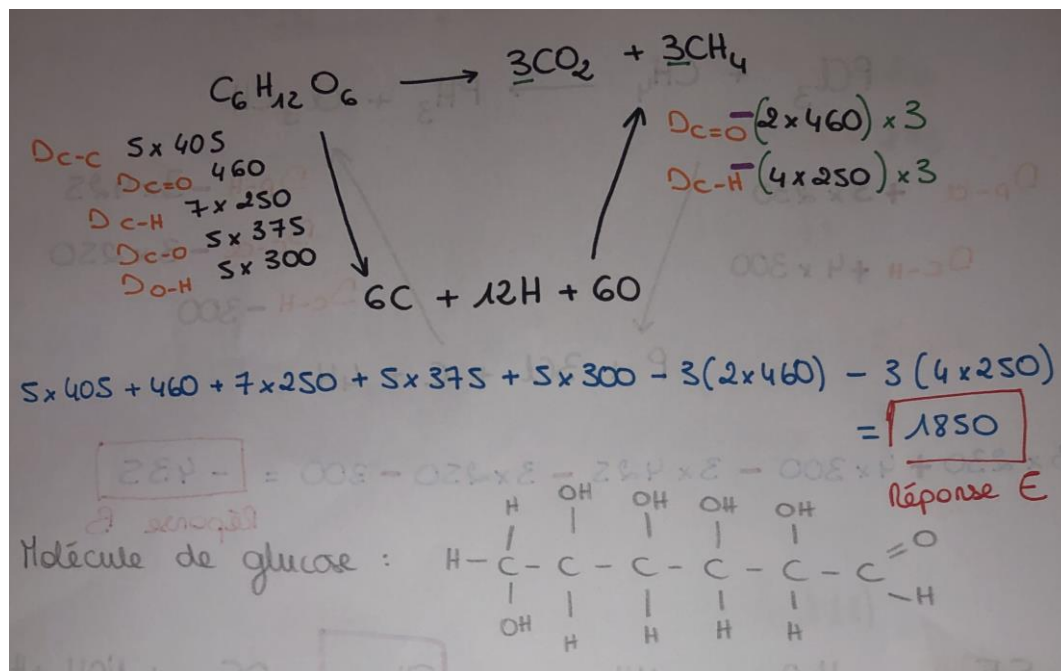 C6H12O6 → 3CO2 + 3CH4
DC-C 5 x 405
DC=O 460
DC-H 7 x 250
DC-O 5 x 375
DO-H 5 x 300
DC=O -(2 x 460) x 3
DC-H -(4 x 250) x 3
6C + 12H + 6O
5 x 405 + 460 + 7 x 250 + 5 x 375 + 5 x 300 - 3(2 x 460) - 3(4 x 250)
= 1850
Réponse E
Molécule de glucose :
H OH OH OH OH
H - C - C - C - C - C - C = O
- H
OH H H H H